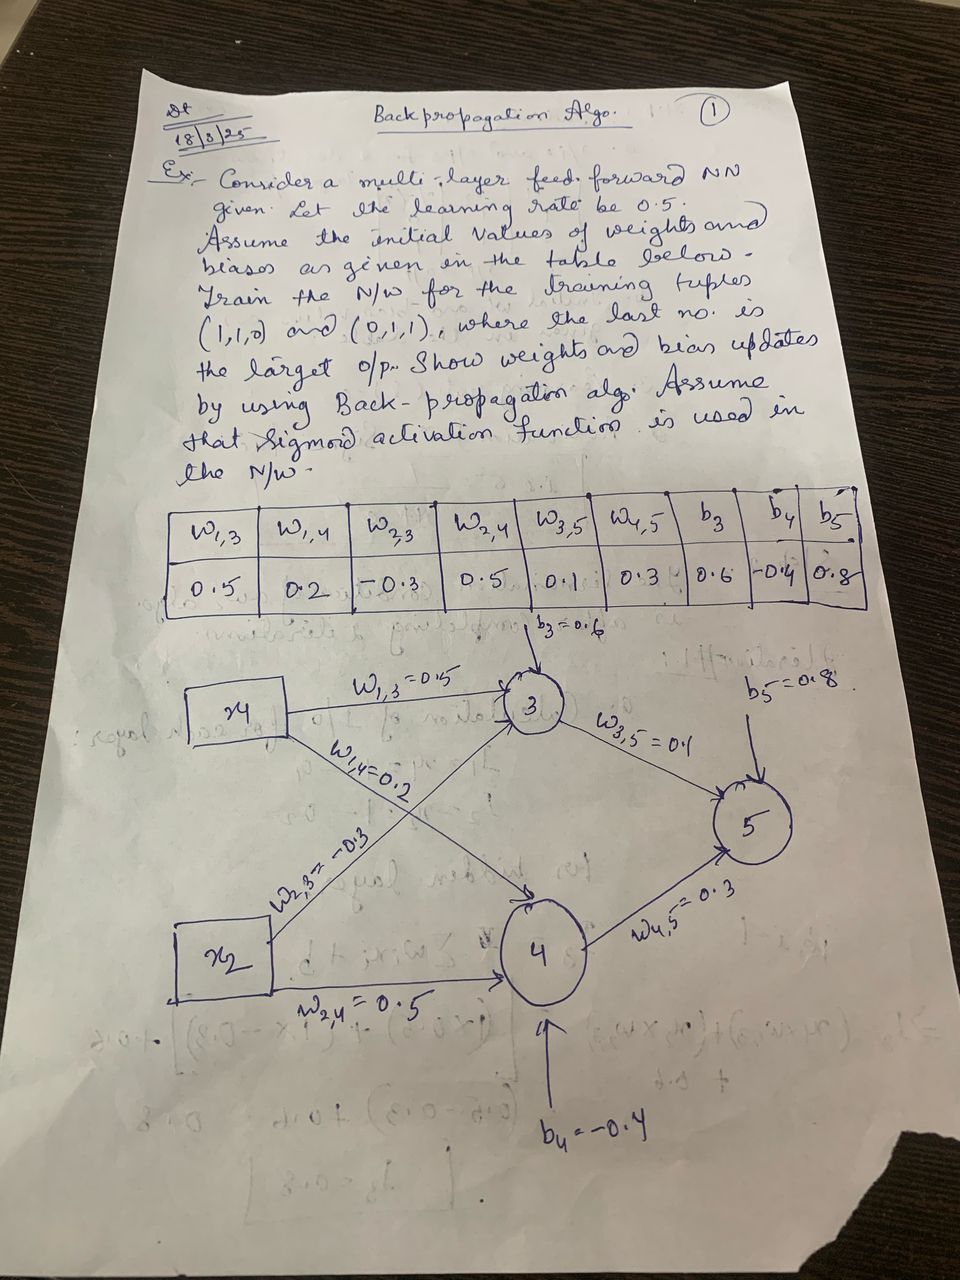 Dt
18/3/25
Back propagation Algo.
1
Ex:- Consider a multi-layer feed forward NN
given. Let the learning rate be 0.5.
Assume the initial values of weights and
biases as given in the table below.
Train the N/W for the training tuples
(1,1,0) and (0,1,1), where the last no. is
the target o/p. Show weights and bias updates
by using Back-propagation algo. Assume
that Sigmoid activation function is used in
the N/W.
W1,3 W1,4 W2,3 W2,4 W3,5 W4,5 b3 b4 b5
0.5 0.2 -0.3 0.5 0.1 0.3 0.6 -0.4 0.8
b3=0.6
x1
W1,3=0.5
3
b5=0.8
W1,4=0.2
W3,5=0.1
W2,3=-0.3
5
x2
4
W4,5=0.3
W2,4=0.5
b4=-0.4